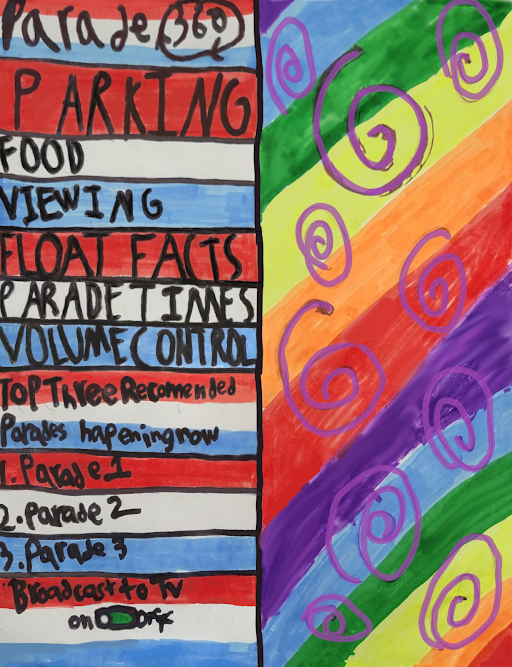 Parade 360
PARKING
FOOD
VIEWING
FLOAT FACTS
PARADE TIMES
VOLUME CONTROL
Top Three Recomended
Parades hapening now
1. Parade 1
2. Parade 2
3. Parade 3
Broadcast to TV
on off